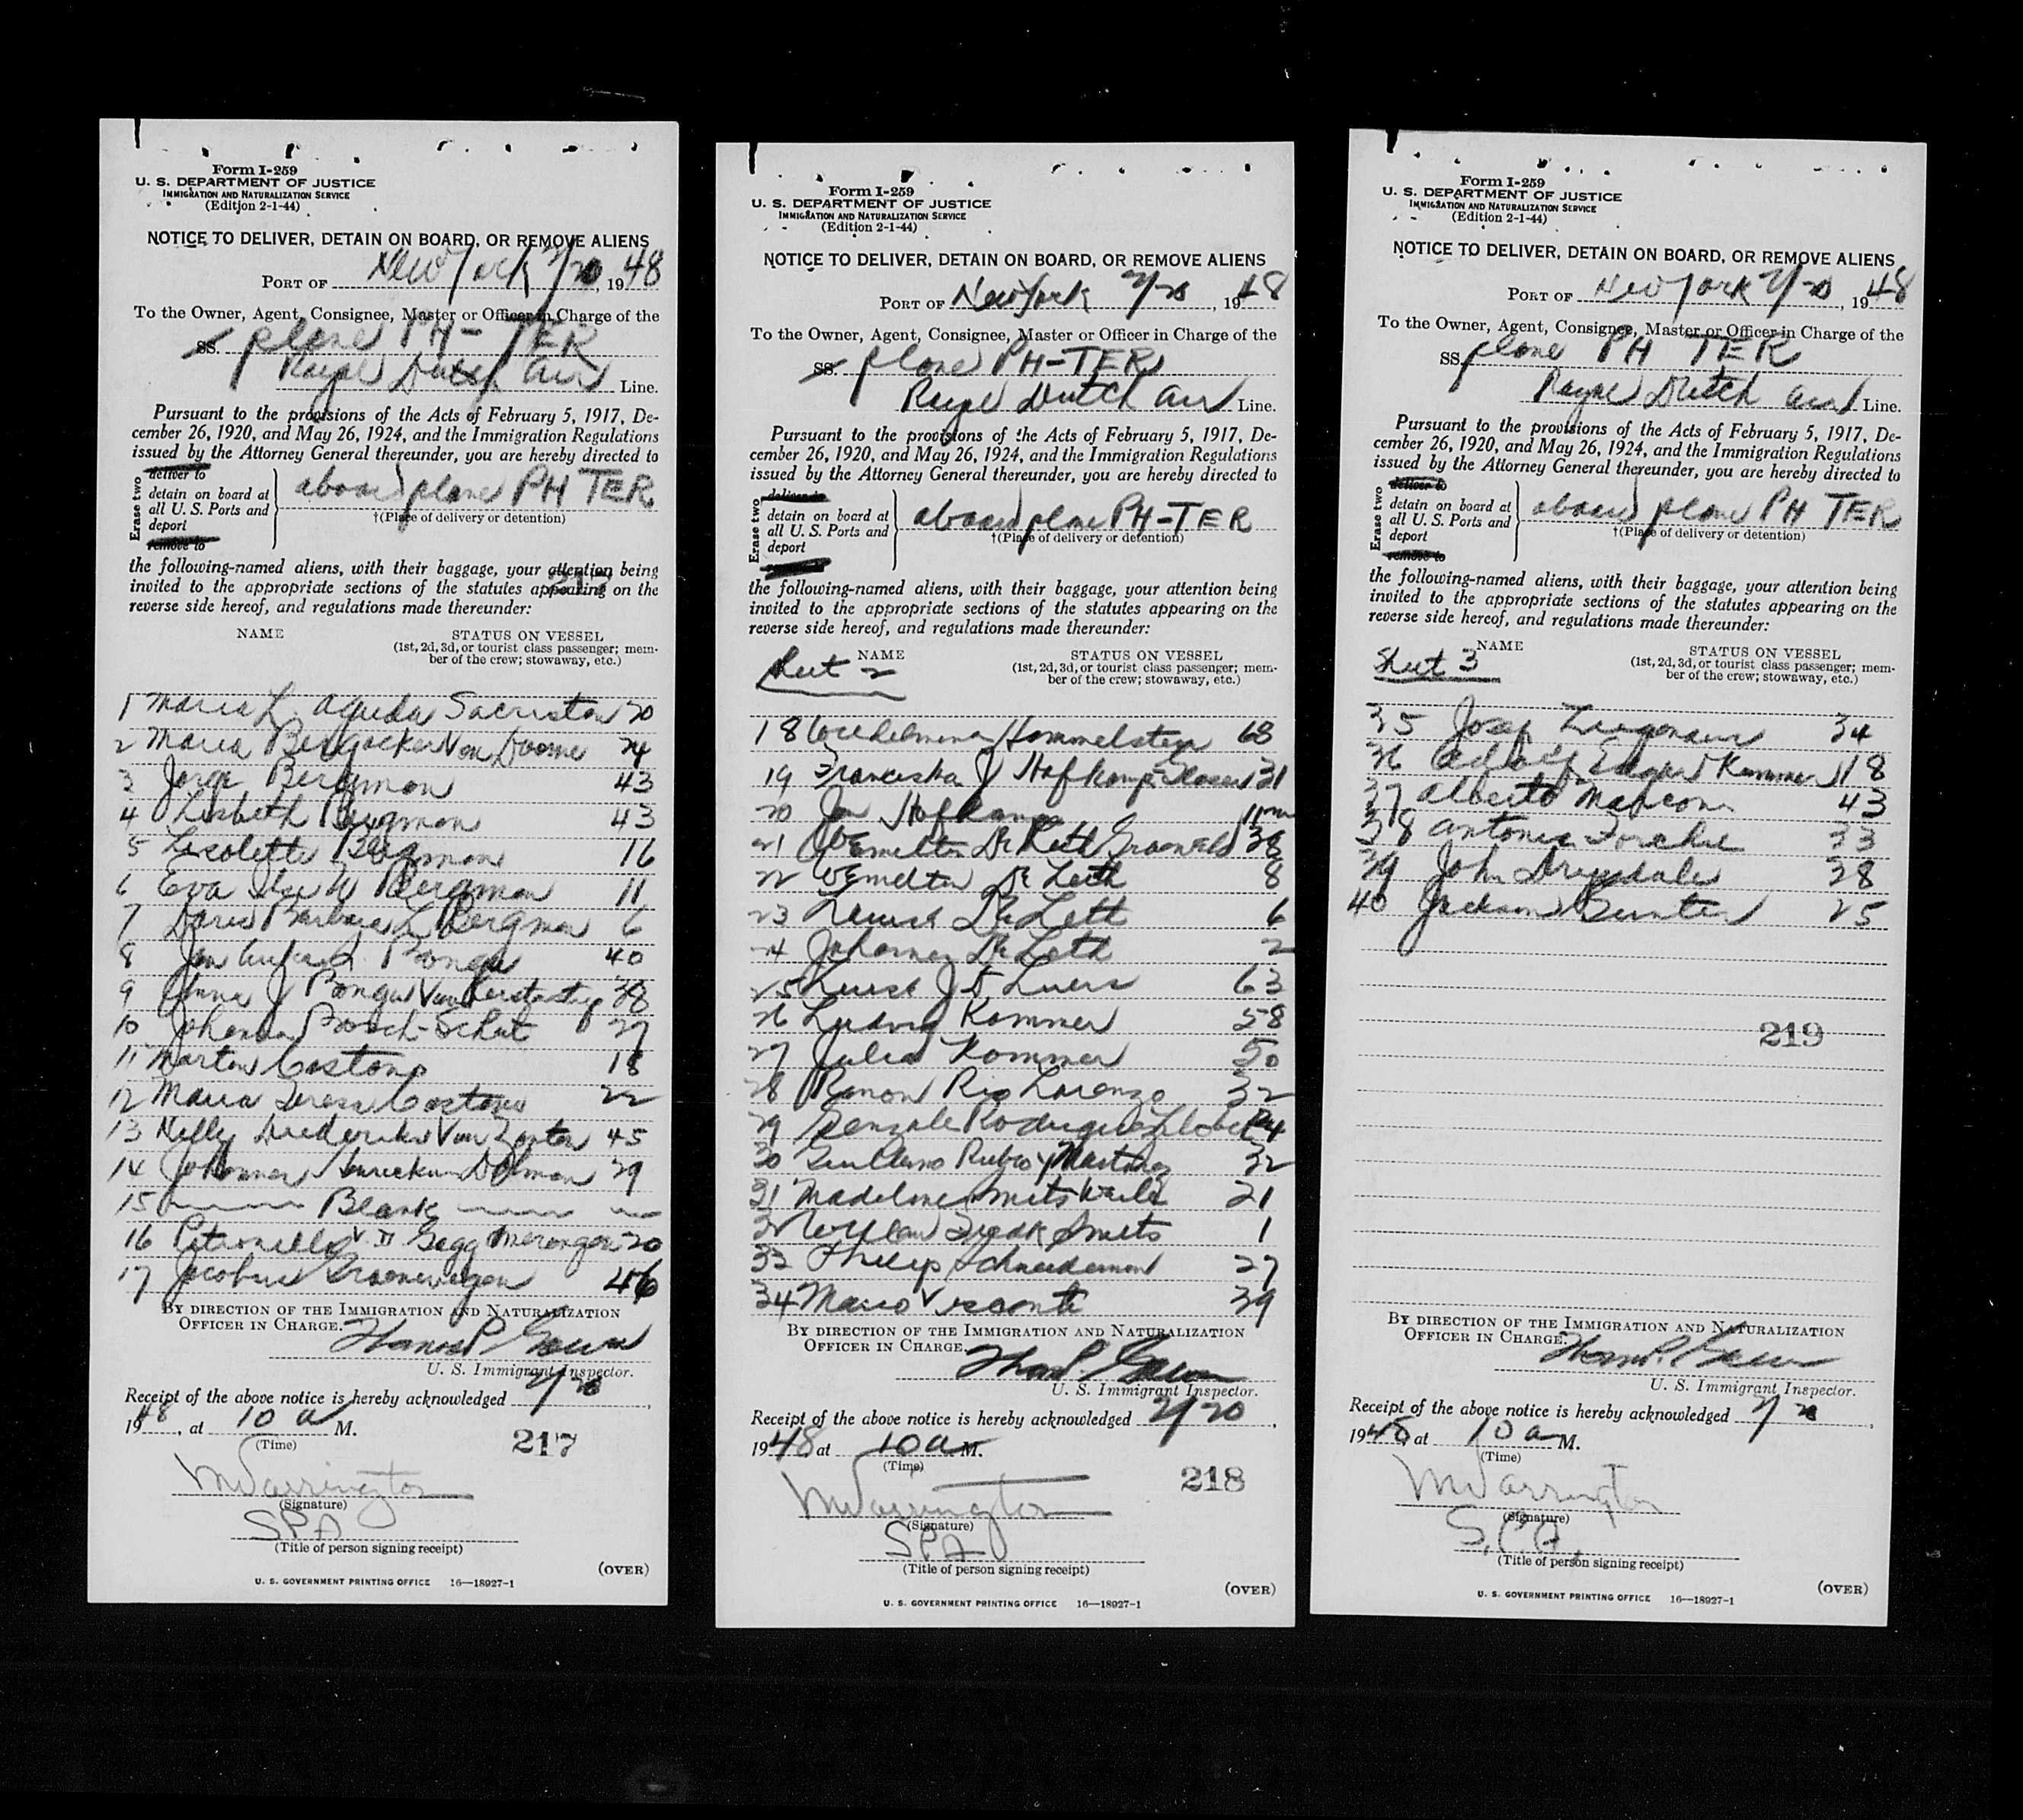 Form I-259
U. S. DEPARTMENT OF JUSTICE
IMMIGRATION AND NATURALIZATION SERVICE
(Edition 2-1-44)
NOTICE TO DELIVER, DETAIN ON BOARD, OR REMOVE ALIENS
PORT OF New York 2/20, 1948
To the Owner, Agent, Consignee, Master or Officer in Charge of the
SS. plane PH-TER
Royal Dutch Air Line.
Pursuant to the provisions of the Acts of February 5, 1917, De-
cember 26, 1920, and May 26, 1924, and the Immigration Regulations
issued by the Attorney General thereunder, you are hereby directed to
Erase two
deliver to
detain on board at
all U. S. Ports and
deport
remove to
aboard plane PH TER
†(Place of delivery or detention)
the following-named aliens, with their baggage, your attention being
invited to the appropriate sections of the statutes appearing on the
reverse side hereof, and regulations made thereunder:
217
NAME
STATUS ON VESSEL
(1st, 2d, 3d, or tourist class passenger; mem-
ber of the crew; stowaway, etc.)
1 Maria L. Agueda Sacristan 20
2 Maria Van Doorne 24
3 Bergman 43
4 Lisbeth Bergman 43
5 Liselotte Bergman 16
6 Eva Ilse W Bergman 11
7 Doris Barbara L Bergman 6
8 Jan 40
9 Anna J
10 Johanna Bosch-Schut 27
11 18
12 Maria Teresa 22
13 Nelly Van 45
14 Dolman 29
15 Blank
16
17 Jacobus Groenewegen 46
BY DIRECTION OF THE IMMIGRATION AND NATURALIZATION
OFFICER IN CHARGE.
U. S. Immigrant Inspector.
Receipt of the above notice is hereby acknowledged 2/20,
1948, at 10 a M.
(Time)
217
M Warrington
(Signature)
SPA
(Title of person signing receipt)
(OVER)
U. S. GOVERNMENT PRINTING OFFICE 16—18927-1
Form I-259
U. S. DEPARTMENT OF JUSTICE
IMMIGRATION AND NATURALIZATION SERVICE
(Edition 2-1-44)
NOTICE TO DELIVER, DETAIN ON BOARD, OR REMOVE ALIENS
PORT OF New York 2/20, 1948
To the Owner, Agent, Consignee, Master or Officer in Charge of the
SS. plane PH-TER
Royal Dutch Air Line.
Pursuant to the provisions of the Acts of February 5, 1917, De-
cember 26, 1920, and May 26, 1924, and the Immigration Regulations
issued by the Attorney General thereunder, you are hereby directed to
Erase two
deliver to
detain on board at
all U. S. Ports and
deport
aboard plane PH-TER
†(Place of delivery or detention)
the following-named aliens, with their baggage, your attention being
invited to the appropriate sections of the statutes appearing on the
reverse side hereof, and regulations made thereunder:
Sheet 2
NAME
STATUS ON VESSEL
(1st, 2d, 3d, or tourist class passenger; mem-
ber of the crew; stowaway, etc.)
18 68
19 31
20 Jan Hofkamp 11 m
21 38
22 De Leth 8
23 De Leth 6
24 De Leth 2
25 63
26 Ludwig Kommer 58
27 Julia Kommer 50
28 Ramon Rio Lorenzo 32
29 Gonzalo Rodriguez
30 Rubio y Martinez 32
31 Madeline Smets 21
32 Smets 1
33 Philip 27
34 Mario Visconti 39
BY DIRECTION OF THE IMMIGRATION AND NATURALIZATION
OFFICER IN CHARGE.
U. S. Immigrant Inspector.
Receipt of the above notice is hereby acknowledged 2/20,
1948 at 10 a M.
(Time)
218
M Warrington
(Signature)
SPA
(Title of person signing receipt)
(OVER)
U. S. GOVERNMENT PRINTING OFFICE 16—18927-1
Form I-259
U. S. DEPARTMENT OF JUSTICE
IMMIGRATION AND NATURALIZATION SERVICE
(Edition 2-1-44)
NOTICE TO DELIVER, DETAIN ON BOARD, OR REMOVE ALIENS
PORT OF New York 2/20, 1948
To the Owner, Agent, Consignee, Master or Officer in Charge of the
SS. plane PH TER
Royal Dutch Air Line.
Pursuant to the provisions of the Acts of February 5, 1917, De-
cember 26, 1920, and May 26, 1924, and the Immigration Regulations
issued by the Attorney General thereunder, you are hereby directed to
Erase two
deliver to
detain on board at
all U. S. Ports and
deport
remove to
aboard plane PH TER
†(Place of delivery or detention)
the following-named aliens, with their baggage, your attention being
invited to the appropriate sections of the statutes appearing on the
reverse side hereof, and regulations made thereunder:
Sheet 3
NAME
STATUS ON VESSEL
(1st, 2d, 3d, or tourist class passenger; mem-
ber of the crew; stowaway, etc.)
35 Josef 34
36 Adolf Edgar Kommer 18
37 Alberto Marconi 43
38 33
39 John Drysdale 28
40 Jackson 25
219
BY DIRECTION OF THE IMMIGRATION AND NATURALIZATION
OFFICER IN CHARGE.
U. S. Immigrant Inspector.
Receipt of the above notice is hereby acknowledged 2/20,
1948, at 10 a M.
(Time)
M Warrington
(Signature)
S.P.A.
(Title of person signing receipt)
(OVER)
U. S. GOVERNMENT PRINTING OFFICE 16—18927-1